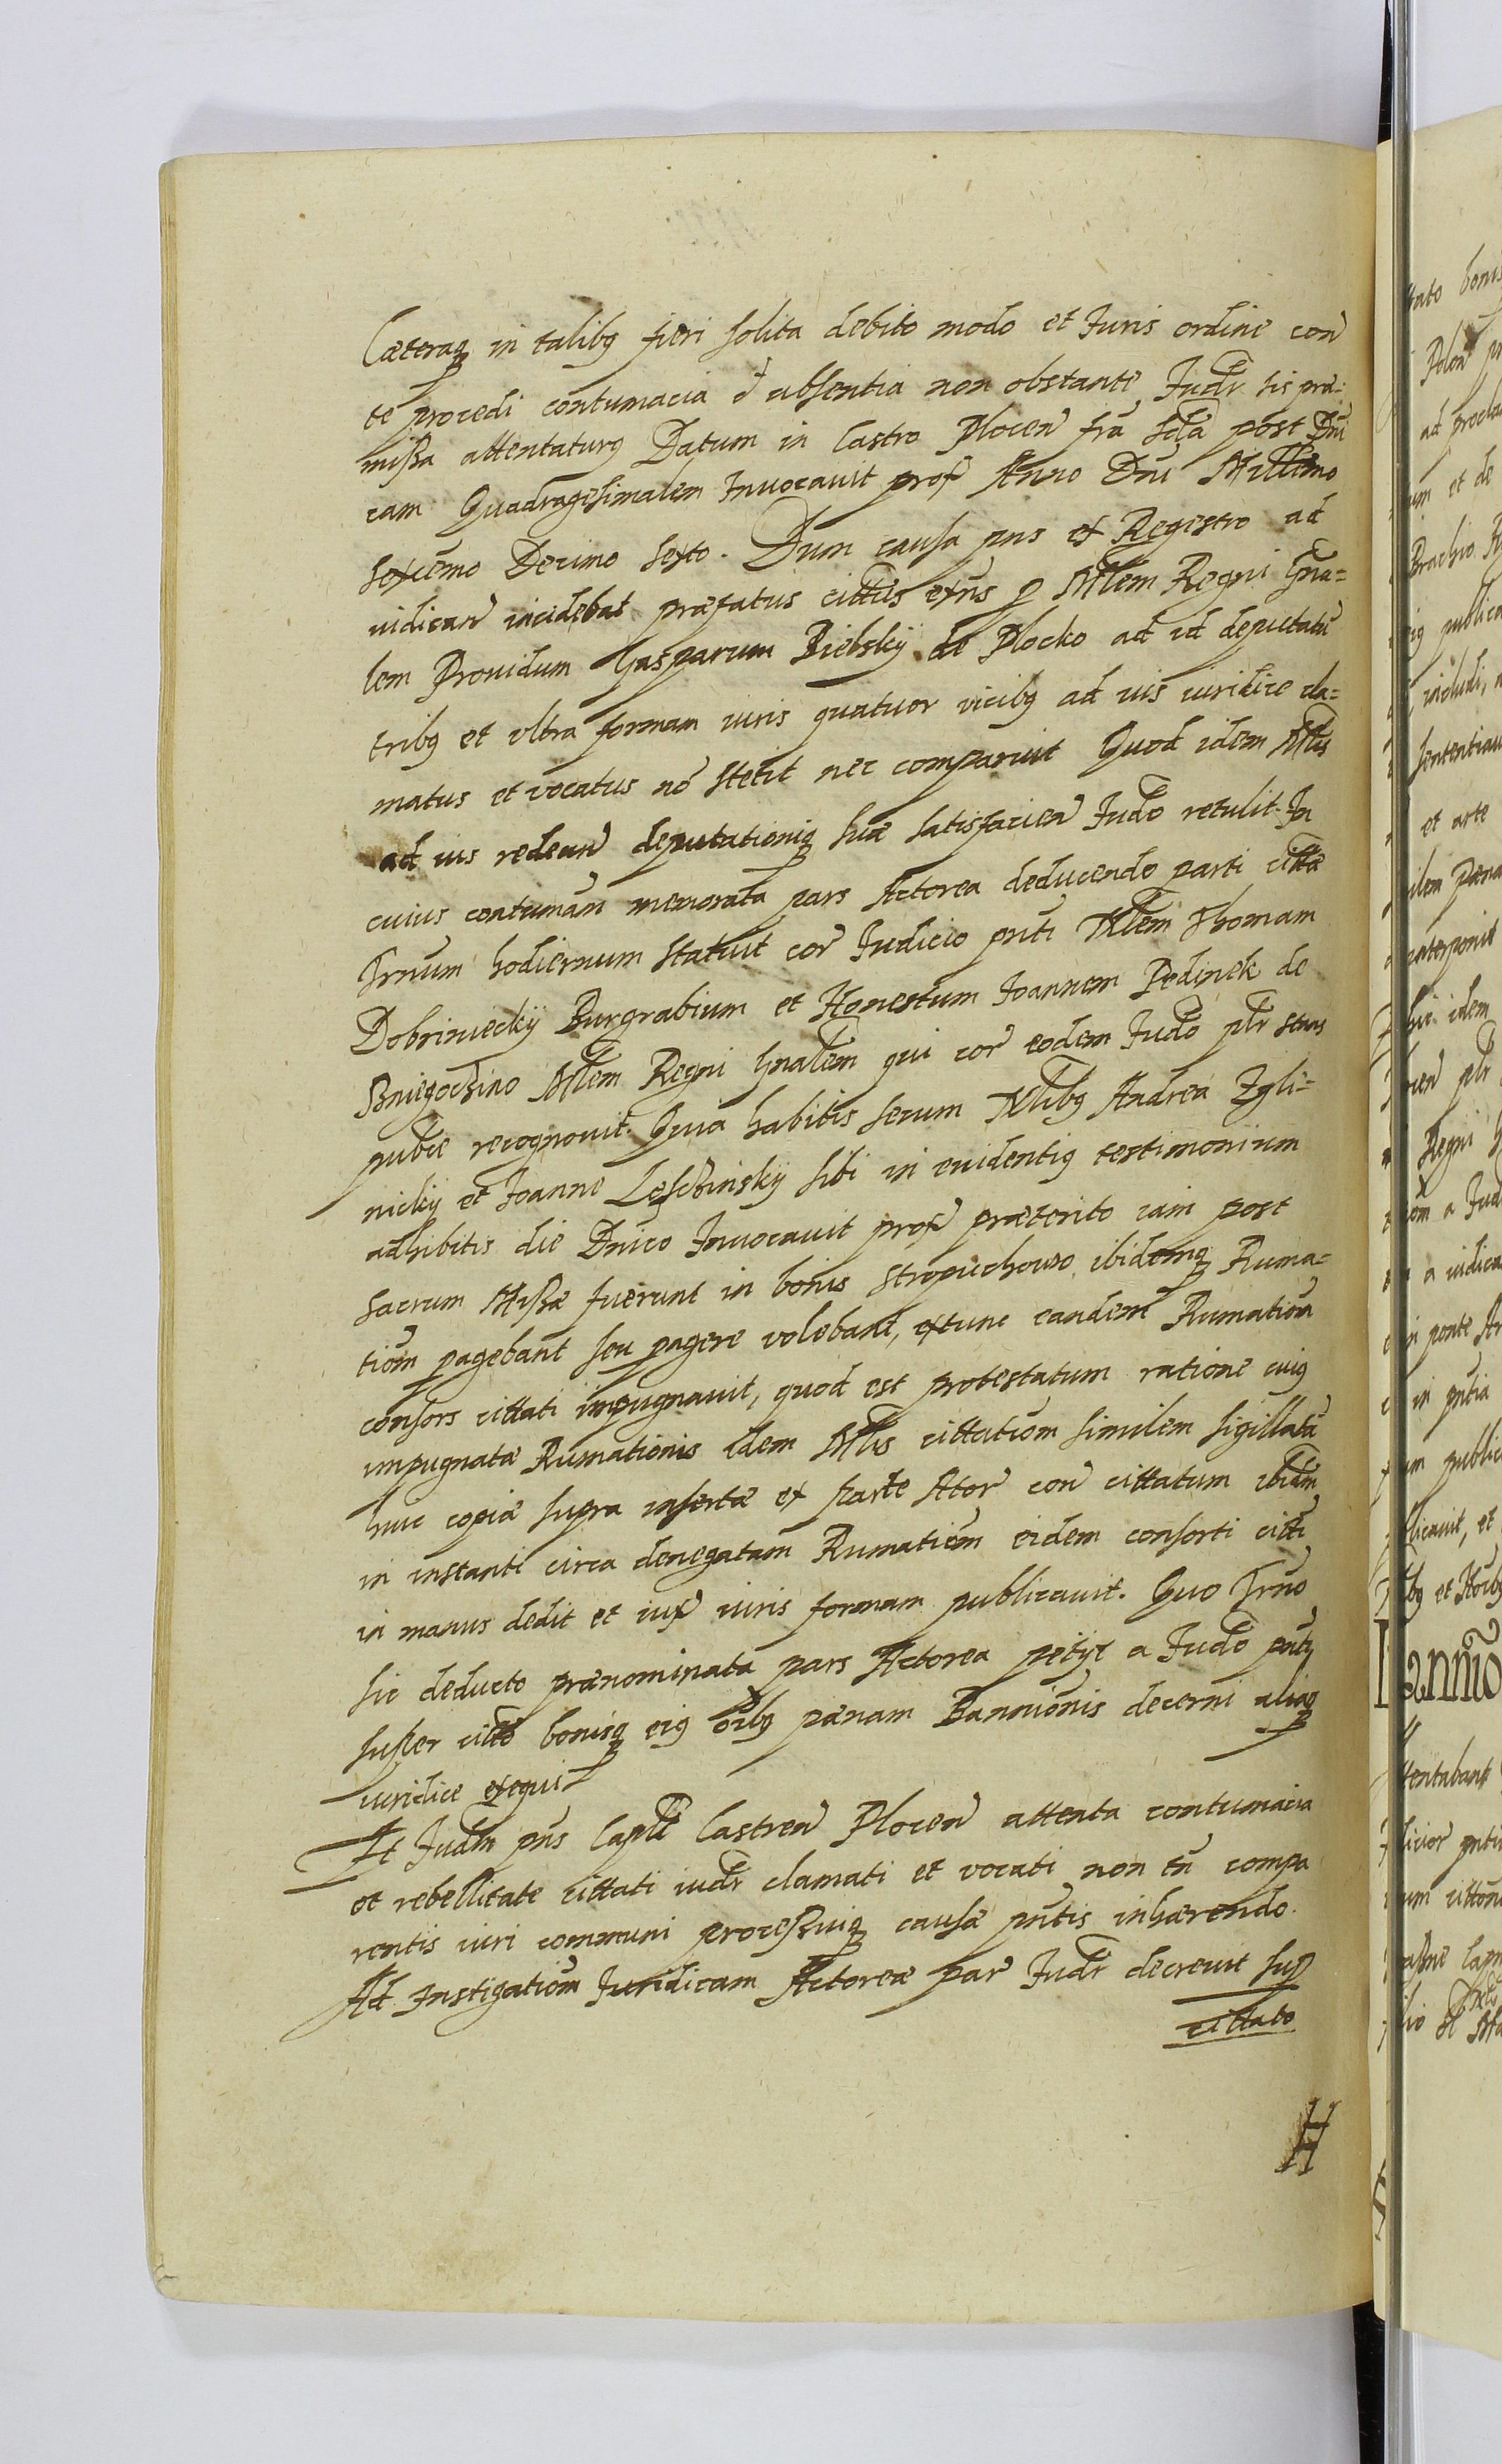 Cæteraq in talibq fieri solita debito modo et Iuris ordine con
te procedi contumacia et absentia non obstante Iudr his præ:
missa attentaturq Datum in Castro Plocen fra scda post Dni
cam Quadragesimalem Inuocauit prox Anno Dni Millimo
sexcemo Decimo sexto. Dum causa pns ex Regestro ad
iudican incidebat præfatus cittus exns p Mlem Regni Gna=
lem Prouidum Gasparum Bielsky de Plocko ad id deputatu
tribq et vltra formam iuris quatuor vicibq ad ius iuridice cla=
matus et vocatus no stetit nec comparuit Quod idem Mlis
ad ius redeun deputationiq suæ satisfacien Iudo retulit In
cuius contumam memorata pars Actorea deducendo parti cittæ
Trnum hodiernum statuit cor Iudicio pnti Nblem Thomam
Dobrinieckÿ Burgrabium et Honestum Ioannem Pedinek de
Sniegochino Mlem Regni Gnalem qui cor eodem Iudo plr stans
publce recognouit. Quia habitis secum Nblibq Andrea Zgli=
nickÿ et Joanne Leschinskÿ sibi in euidentiq testimonium
adhibitis die Dnico Inuocauit prox præterito iam post
sacrum Missæ fuerunt in bonis Stropuchowo ibidemq Ruma=
tiom pagebant seu pagere volebant, extunc eandem Rumatiom
consors cittati impugnauit, quod est protestatum ratione cuiq
impugnatæ Rumationis idem Mlis cittatiom similem sigillatu
huic copiæ supra insertæ ex parte Ator con cittatum ibidm
in instanti circa denegatam Rumatiom eidem consorti citti
in manus dedit et iux iuris formam publicauit. Quo Trno
sic deducto prænominata pars Actorea petÿt a Iudo pnti
super citto bonisq eiq oibq pænam Bannionis decerni aliaq
iuridice exequi
Et Iudm pns Capll Castren Plocen attenta contumacia
et rebellitate cittati iudr clamati et vocati non tn compa
rentis iuri communi processuiq causæ pntis inhærendo.
Ad Instigatiom Iuridicam Actoreæ par Iudr decreuit sup
cittato